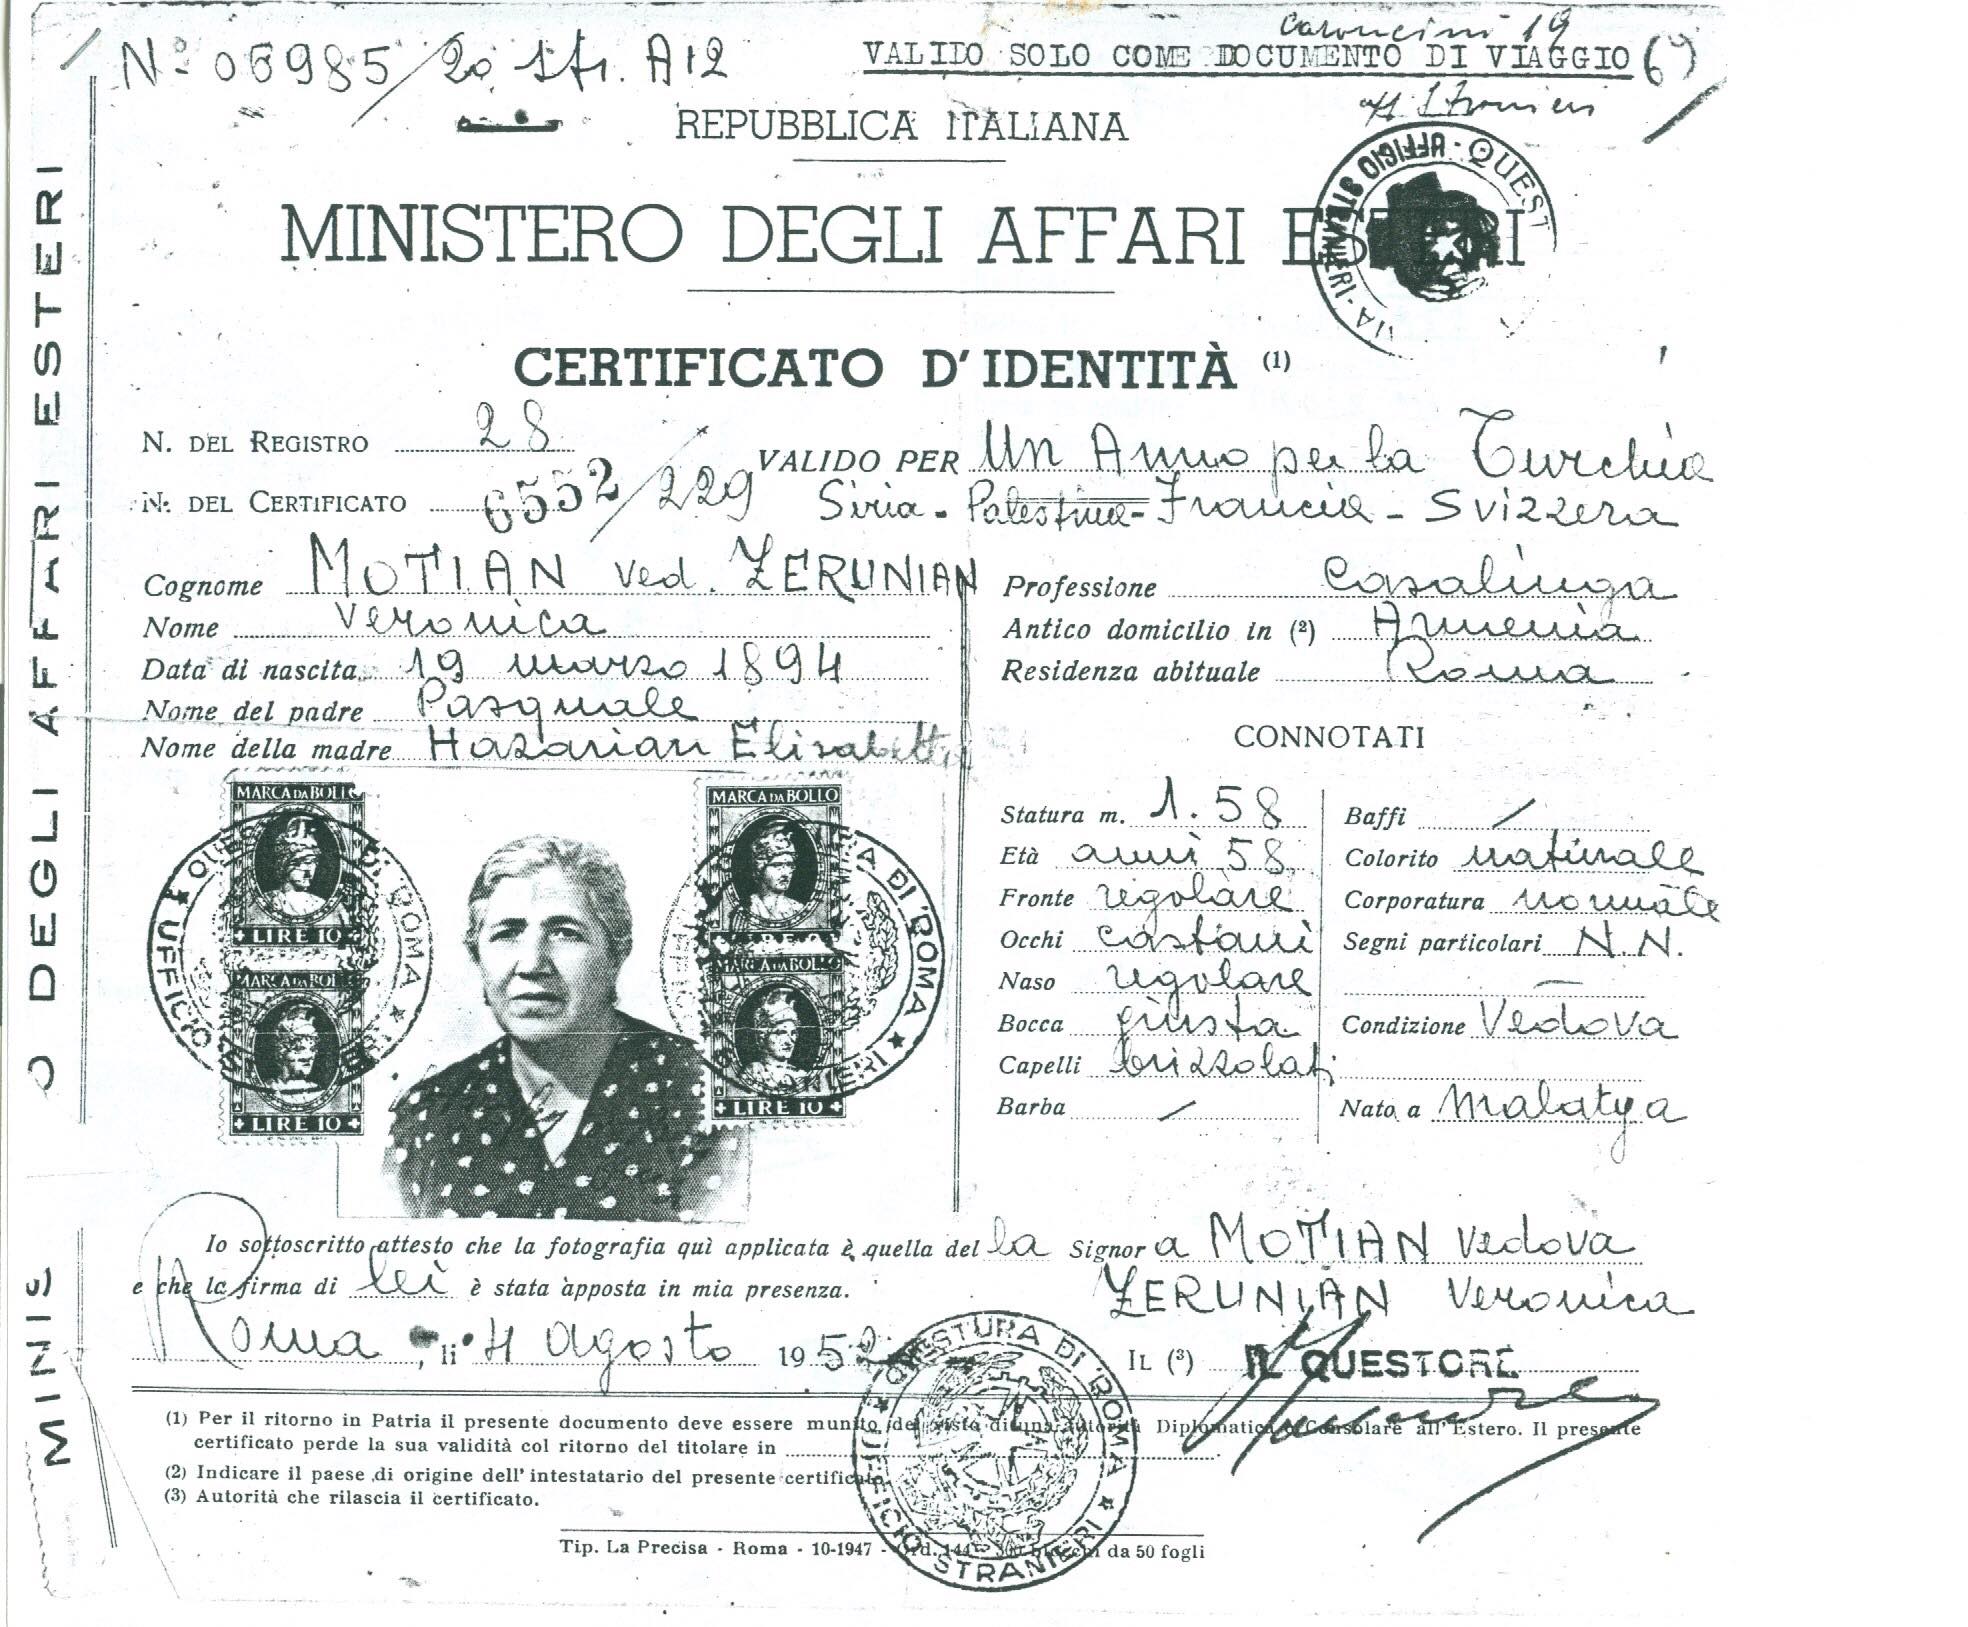 Nº 06985/20 Str. A12
Caroncini 19
VALIDO SOLO COME DOCUMENTO DI VIAGGIO
69
Stranieri
REPUBBLICA ITALIANA
MINISTERO DEGLI AFFARI ESTERI
UFFICIO STRANIERI · QUEST
CERTIFICATO D'IDENTITÀ (1)
N. DEL REGISTRO 28
N. DEL CERTIFICATO 6552/229
VALIDO PER Un Anno per la Turchia
Siria - Palestina - Francia - Svizzera
Cognome MOTIAN ved. ZERUNIAN
Nome Veronica
Data di nascita 19 marzo 1894
Nome del padre Pasquale
Nome della madre Hazarian Elisabetta
Professione Casalinga
Antico domicilio in (2) Armenia
Residenza abituale Roma
CONNOTATI
Statura m. 1.58
Età anni 58
Fronte regolare
Occhi castani
Naso regolare
Bocca giusta
Capelli brizzolati
Barba /
Baffi /
Colorito naturale
Corporatura normale
Segni particolari N.N.
Condizione Vedova
Nato a Malatya
MARCA DA BOLLO
LIRE 10
MARCA DA BOLLO
LIRE 10
MARCA DA BOLLO
LIRE 10
MARCA DA BOLLO
LIRE 10
QUESTURA DI ROMA
UFFICIO
Io sottoscritto attesto che la fotografia quì applicata è quella del la Signor a MOTIAN Vedova
e che la firma di lei è stata apposta in mia presenza.
ZERUNIAN Veronica
Roma, li 4 agosto 1952
IL (3) IL QUESTORE
QUESTURA DI ROMA
UFFICIO STRANIERI
(1) Per il ritorno in Patria il presente documento deve essere munito del visto di una autorità Diplomatica o Consolare all'Estero. Il presente
certificato perde la sua validità col ritorno del titolare in
(2) Indicare il paese di origine dell'intestatario del presente certificato.
(3) Autorità che rilascia il certificato.
Tip. La Precisa - Roma - 10-1947 - Ord. 144 - 300 blocchi da 50 fogli
MINIS
O DEGLI AFFARI ESTERI